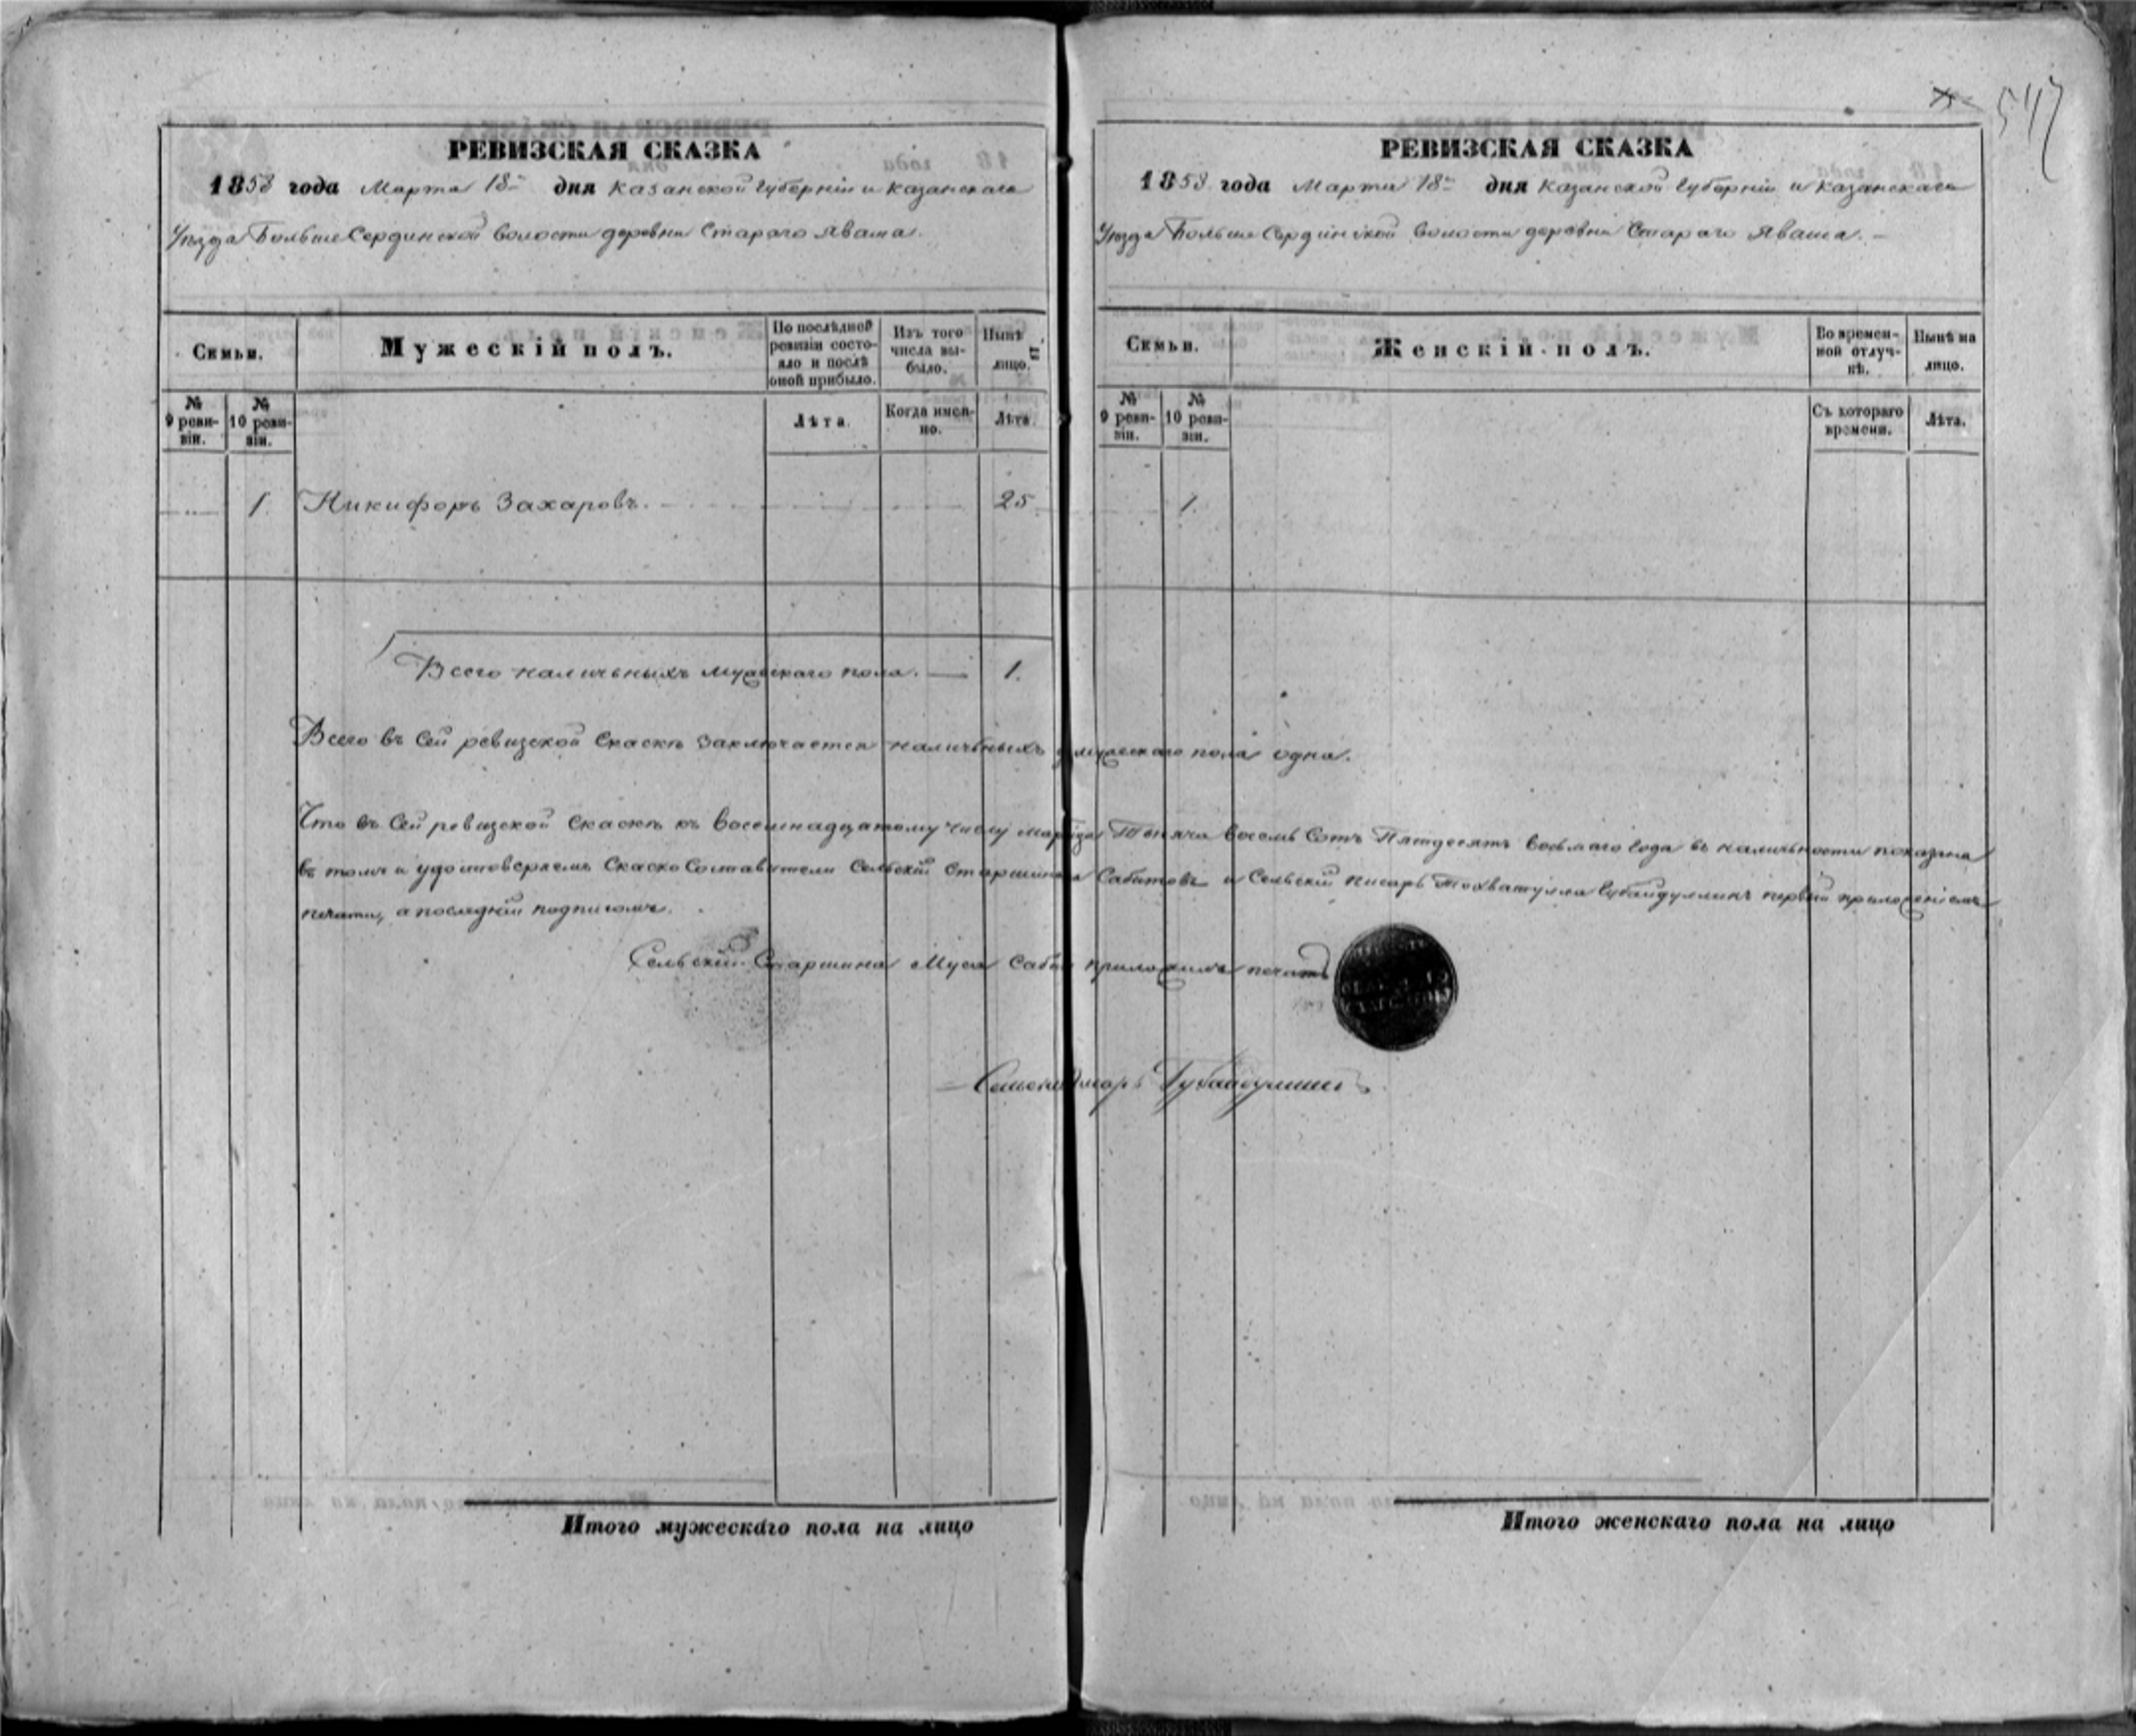 547
РЕВИЗСКАЯ СКАЗКА
1858 года Марта 18 дня Казанской Губерніи и Казанскаго
Уѣзда БольшеСердинской волости деревни Стараго Яваша.
Семьи.
Мужескій полъ.
По послѣдней ревизіи состояло и послѣ оной прибыло.
Изъ того числа выбыло.
Нынѣ на лицо.
№ 9 ревизіи.
№ 10 ревизіи.
Лѣта.
Когда именно.
Лѣта.
1. Никифоръ Захаровъ. 25
Всего наличныхъ мужескаго пола. — 1.
РЕВИЗСКАЯ СКАЗКА
1858 года Марта 18 дня Казанской Губерніи и Казанскаго
Уѣзда БольшеСердинской волости деревни Стараго Яваша. —
Семьи.
Женскій полъ.
Во временной отлучкѣ.
Нынѣ на лицо.
№ 9 ревизіи.
№ 10 ревизіи.
Съ котораго времени.
Лѣта.
1.
Всего въ Сей ревизской Скаскѣ Заключается наличныхъ мужескаго пола одна.
Что въ Сей ревизской Скаскѣ къ восемнадцатому числу Марта Тысяча восемь Сотъ Пятдесятъ восьмаго года въ наличности показана
въ томъ и удостоверяемъ Скаско Составители Сельскій Старшина Сабитовъ и Сельскій писарь Губайдуллинъ первый приложеніемъ
печати, а последній подписомъ.
Сельскій Старшина Муса приложилъ печать
Губайдуллинъ
Итого мужескаго пола на лицо
Итого женскаго пола на лицо